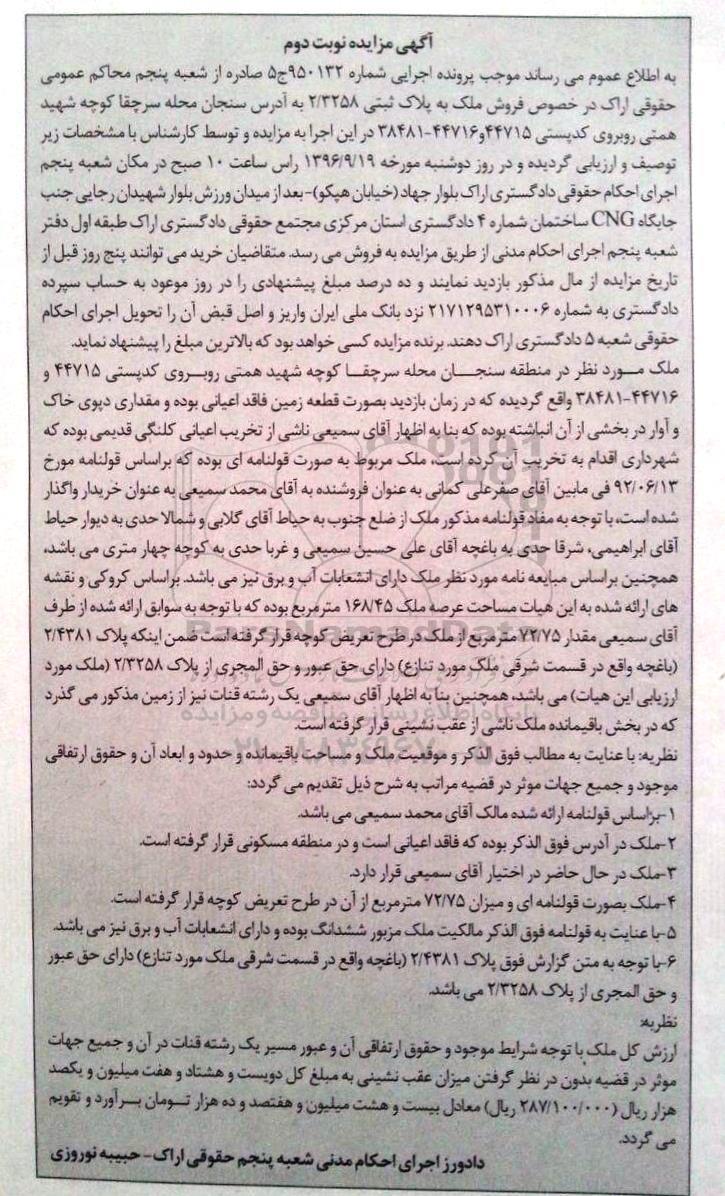 آگهی مزایده نوبت دوم
به اطلاع عموم می رساند موجب پرونده اجرایی شماره ۹۵۰۱۳۲ج۵ صادره از شعبه پنجم محاکم عمومی
حقوقی اراک در خصوص فروش ملک به پلاک ثبتی ۲/۳۲۵۸ به آدرس سنجان محله سرچقا کوچه شهید
همتی روبروی کدپستی ۴۴۷۱۵و۴۴۷۱۶-۳۸۴۸۱ در این اجرا به مزایده و توسط کارشناس با مشخصات زیر
توصیف و ارزیابی گردیده و در روز دوشنبه مورخه ۱۳۹۶/۹/۱۹ راس ساعت ۱۰ صبح در مکان شعبه پنجم
اجرای احکام حقوقی دادگستری اراک بلوار جهاد (خیابان هپکو)-بعد از میدان ورزش بلوار شهیدان رجایی جنب
جایگاه CNG ساختمان شماره ۴ دادگستری استان مرکزی مجتمع حقوقی دادگستری اراک طبقه اول دفتر
شعبه پنجم اجرای احکام مدنی از طریق مزایده به فروش می رسد. متقاضیان خرید می توانند پنج روز قبل از
تاریخ مزایده از مال مذکور بازدید نمایند و ده درصد مبلغ پیشنهادی را در روز موعود به حساب سپرده
دادگستری به شماره ۲۱۷۱۲۹۵۳۱۰۰۰۶ نزد بانک ملی ایران واریز و اصل قبض آن را تحویل اجرای احکام
حقوقی شعبه ۵ دادگستری اراک دهند. برنده مزایده کسی خواهد بود که بالاترین مبلغ را پیشنهاد نماید.
ملک مورد نظر در منطقه سنجان محله سرچقا کوچه شهید همتی روبروی کدپستی ۴۴۷۱۵ و
۴۴۷۱۶-۳۸۴۸۱ واقع گردیده که در زمان بازدید بصورت قطعه زمین فاقد اعیانی بوده و مقداری دپوی خاک
و آوار در بخشی از آن انباشته بوده که بنا به اظهار آقای سمیعی ناشی از تخریب اعیانی کلنگی قدیمی بوده که
شهرداری اقدام به تخریب آن کرده است، ملک مربوط به صورت قولنامه ای بوده که براساس قولنامه مورخ
۹۲/۰۶/۱۳ فی مابین آقای صفرعلی کمانی به عنوان فروشنده به آقای محمد سمیعی به عنوان خریدار واگذار
شده است، با توجه به مفاد قولنامه مذکور ملک از ضلع جنوب به حیاط آقای گلابی و شمالا حدی به دیوار حیاط
آقای ابراهیمی، شرقا حدی به باغچه آقای علی حسین سمیعی و غربا حدی به کوچه چهار متری می باشد،
همچنین براساس مبایعه نامه مورد نظر ملک دارای انشعابات آب و برق نیز می باشد. براساس کروکی و نقشه
های ارائه شده به این هیات مساحت عرصه ملک ۱۶۸/۴۵ مترمربع بوده که با توجه به سوابق ارائه شده از طرف
آقای سمیعی مقدار ۷۲/۷۵ مترمربع از ملک در طرح تعریض کوچه قرار گرفته است ضمن اینکه پلاک ۲/۴۳۸۱
(باغچه واقع در قسمت شرقی ملک مورد تنازع) دارای حق عبور و حق المجری از پلاک ۲/۳۲۵۸ (ملک مورد
ارزیابی این هیات) می باشد، همچنین بنا به اظهار آقای سمیعی یک رشته قنات نیز از زمین مذکور می گذرد
که در بخش باقیمانده ملک ناشی از عقب نشینی قرار گرفته است.
نظریه: با عنایت به مطالب فوق الذکر و موقعیت ملک و مساحت باقیمانده و حدود و ابعاد آن و حقوق ارتفاقی
موجود و جمیع جهات موثر در قضیه مراتب به شرح ذیل تقدیم می گردد:
۱-براساس قولنامه ارائه شده مالک آقای محمد سمیعی می باشد.
۲-ملک در آدرس فوق الذکر بوده که فاقد اعیانی است و در منطقه مسکونی قرار گرفته است.
۳-ملک در حال حاضر در اختیار آقای سمیعی قرار دارد.
۴-ملک بصورت قولنامه ای و میزان ۷۲/۷۵ مترمربع از آن در طرح تعریض کوچه قرار گرفته است.
۵-با عنایت به قولنامه فوق الذکر مالکیت ملک مزبور ششدانگ بوده و دارای انشعابات آب و برق نیز می باشد.
۶-با توجه به متن گزارش فوق پلاک ۲/۴۳۸۱ (باغچه واقع در قسمت شرقی ملک مورد تنازع) دارای حق عبور
و حق المجری از پلاک ۲/۳۲۵۸ می باشد.
نظریه:
ارزش کل ملک با توجه شرایط موجود و حقوق ارتفاقی آن و عبور مسیر یک رشته قنات در آن و جمیع جهات
موثر در قضیه بدون در نظر گرفتن میزان عقب نشینی به مبلغ کل دویست و هشتاد و هفت میلیون و یکصد
هزار ریال (۲۸۷/۱۰۰/۰۰۰ ریال) معادل بیست و هشت میلیون و هفتصد و ده هزار تومان برآورد و تقویم
می گردد.
دادورز اجرای احکام مدنی شعبه پنجم حقوقی اراک- حبیبه نوروزی
ParsNamadData